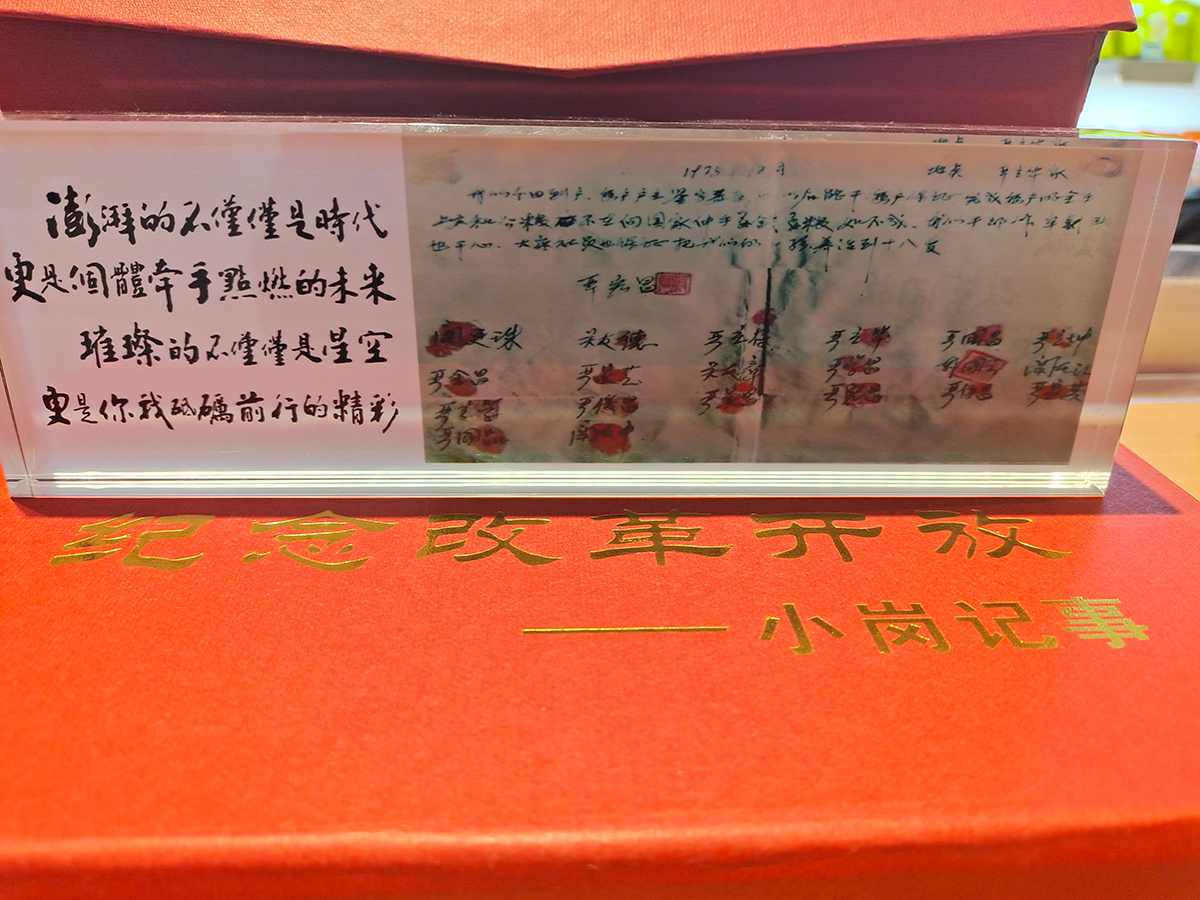 澎湃的不僅僅是時代
更是個體牽手點燃的未来
璀璨的不僅僅是星空
更是你我砥礪前行的精彩
12月 地点 严立华家
我们分田到户 每户户主签字盖 以后能干 每户保证 完成每户的全年
上交和公粮 不在向国家伸手要 要粮 如不成 我们干部作牢
也干心 大家社员也保证把我们的小孩养活到十八岁
严宏昌
关友珠 严立华 严国昌 严立坤
严金昌
纪念改革开放
——小岗记事